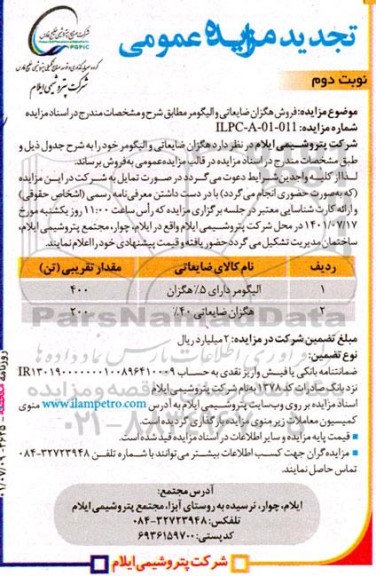 تجدید مزایده عمومی
PGPIC
شرکت پتروشیمی ایلام
نوبت دوم
موضوع مزایده: فروش هگزان ضایعاتی و الیگومر مطابق شرح و مشخصات مندرج در اسناد مزایده
شماره مزایده: ILPC-A-01-011
شرکت پتروشیمی ایلام در نظر دارد هگزان ضایعاتی و الیگومر خود را به شرح جدول ذیل و
طبق مشخصات مندرج در اسناد مزایده در قالب مزایده عمومی به فروش برساند.
لذا از کلیه واجدین شرایط دعوت می گردد در صورت تمایل به شرکت در این مزایده
(که به صورت حضوری انجام می گردد) با در دست داشتن معرفی نامه رسمی (اشخاص حقوقی)
و ارائه کارت شناسایی معتبر در جلسه برگزاری مزایده که رأس ساعت ۱۱:۰۰ روز یکشنبه مورخ
۱۴۰۱/۰۷/۱۷ در محل شرکت پتروشیمی ایلام واقع در ایلام، چوار، مجتمع پتروشیمی ایلام،
ساختمان مدیریت تشکیل می گردد حضور یافته و قیمت پیشنهادی خود را اعلام نمایند.
ردیف نام کالای ضایعاتی مقدار تقریبی (تن)
۱ الیگومر دارای ۵٪ هگزان ۴۰۰
۲ هگزان ضایعاتی ۴۰٪ ۲۰۰
ParsNamadData
مبلغ تضمین شرکت در مزایده: ۲ میلیارد ریال
نوع تضمین:
ضمانتنامه بانکی یا فیش واریز نقدی به حساب
نزد بانک صادرات کد ۱۳۷۸ به نام شرکت پتروشیمی ایلام
اسناد مزایده بر روی وب سایت پتروشیمی ایلام به آدرس www.ilampetro.com منوی
کمیسیون معاملات زیر منوی مزایده بارگذاری گردیده است.
• قیمت پایه مزایده و سایر اطلاعات در اسناد مزایده قید شده است.
• مزایده گران جهت کسب اطلاعات بیشتر می توانند با شماره تلفن ۳۲۷۲۳۹۴۸-۰۸۴
تماس حاصل نمایند.
آدرس مجتمع:
ایلام، چوار، نرسیده به روستای آبزا، مجتمع پتروشیمی ایلام
تلفکس: ۳۲۷۲۳۹۴۸-۰۸۴
کدپستی: ۶۹۳۶۱۵۹۷۰۰
شرکت پتروشیمی ایلام